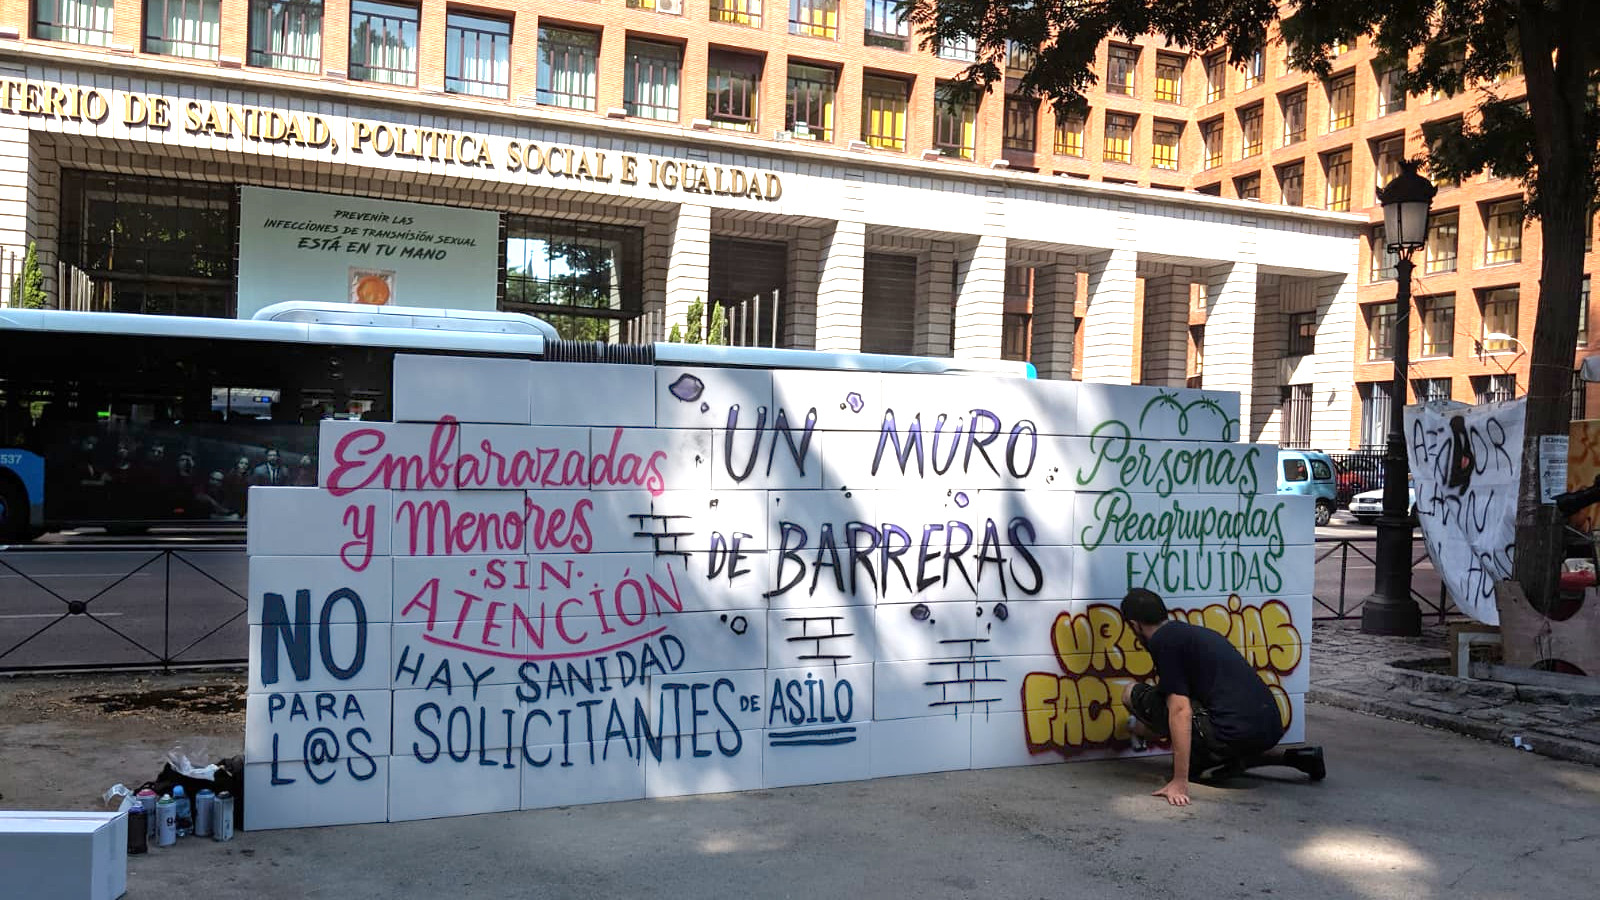 TERIO DE SANIDAD, POLITICA SOCIAL E IGUALDAD
PREVENIR LAS
INFECCIONES DE TRANSMISIÓN SEXUAL
ESTÁ EN TU MANO
537
Embarazadas
y Menores
·SIN·
ATENCIÓN
NO
PARA
L@S
HAY SANIDAD
SOLICITANTES DE ASILO
UN MURO
DE BARRERAS
Personas
Reagrupadas
EXCLUÍDAS
URGENCIAS